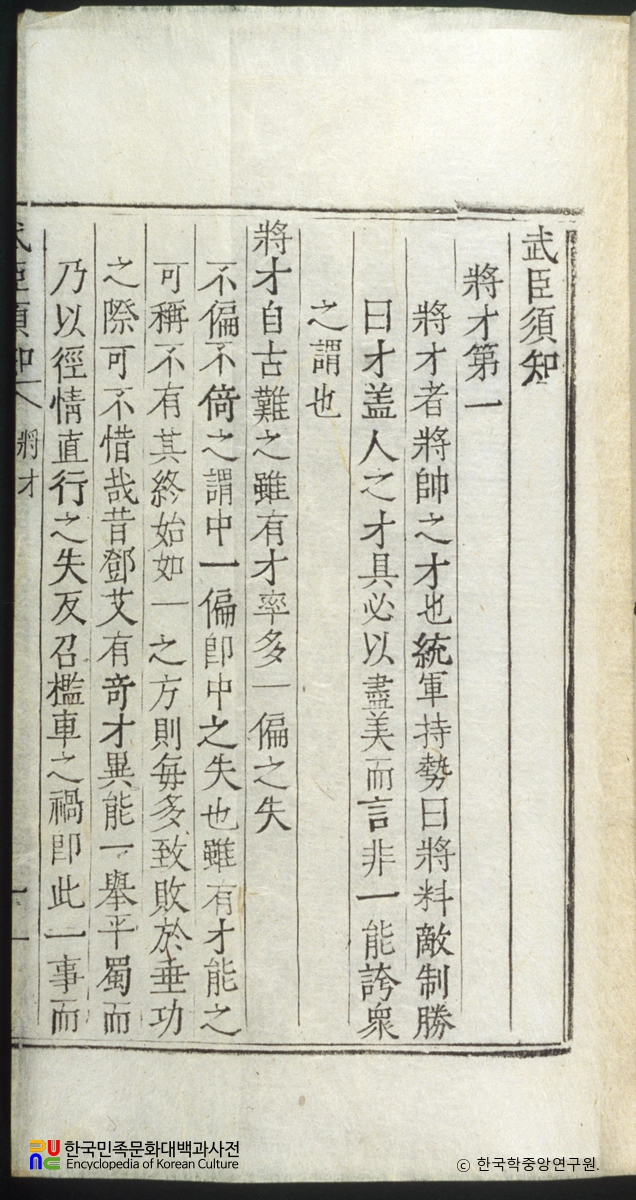 武臣須知
將才第一
將才者將帥之才也統軍持勢曰將料敵制勝
曰才盖人之才具必以盡美而言非一能誇衆
之謂也
將才自古難之雖有才率多一偏之失
不偏不倚之謂中一偏卽中之失也雖有才能之
可稱不有其終始如一之方則每多致敗於垂功
之際可不惜哉昔鄧艾有奇才異能一擧平蜀而
乃以徑情直行之失反召檻車之禍卽此一事而
武臣須知 將才 一
한국민족문화대백과사전
Encyclopedia of Korean Culture
ⓒ 한국학중앙연구원.